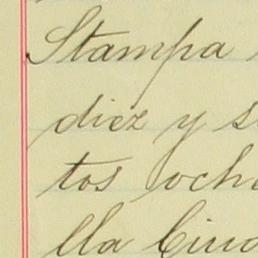 Stampa
diez y s
tos och
lla Ciud